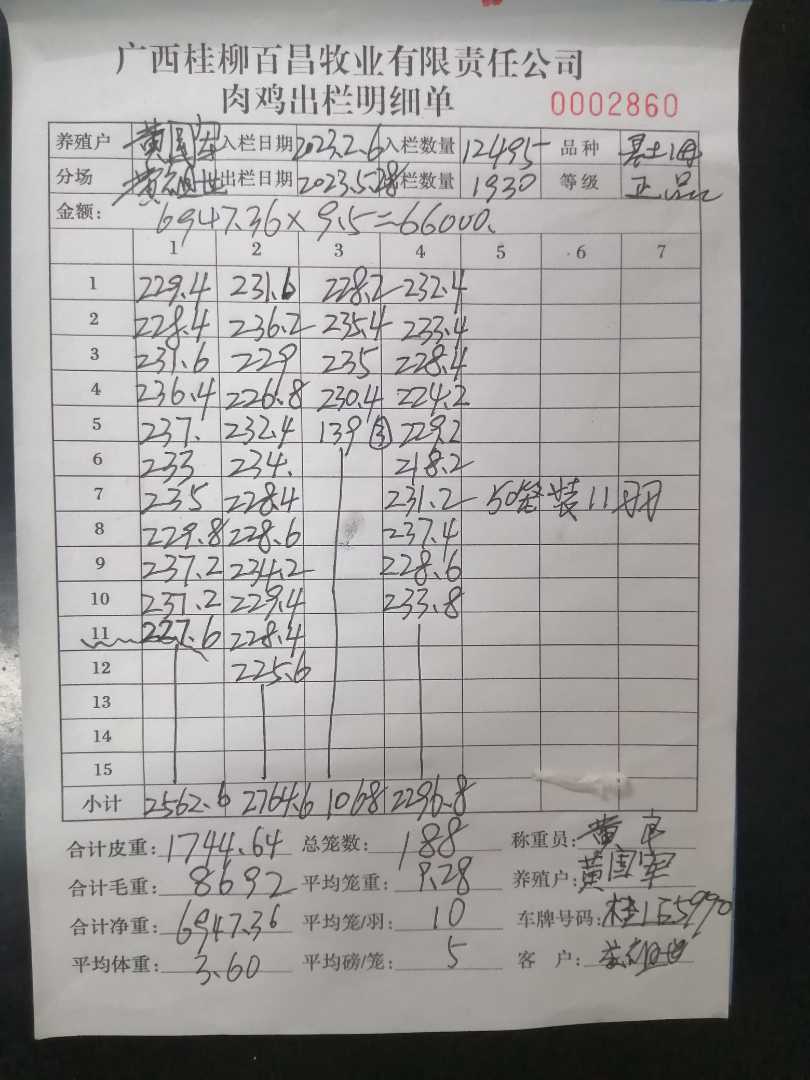 广西桂柳百昌牧业有限责任公司
肉鸡出栏明细单 0002860
养殖户 黄国军 入栏日期 2023.2.6 入栏数量 12495 品种
分场 出栏日期 2023.5.28 栏数量 1930 等级 正品
金额: 6947.36×9.5=66000.
1 2 3 4 5 6 7
1 229.4 231.6 228.2 232.4
2 228.4 236.2 235.4 233.4
3 231.6 229 235 228.4
4 236.4 226.8 230.4 224.2
5 237. 232.4 139 ③ 229.2
6 233 234. 218.2
7 235 228.4 231.2 50笼装11羽
8 229.8 228.6 237.4
9 237.2 234.2 228.6
10 237.2 229.4 233.8
11 227.6 228.4
12 225.6
13
14
15
小计 2562.6 2764.6 1068 2296.8
合计皮重: 1744.64 总笼数: 188 称重员: 黄
合计毛重: 8692 平均笼重: 9.28 养殖户: 黄国军
合计净重: 6947.36 平均笼/羽: 10 车牌号码:
平均体重: 3.60 平均磅/笼: 5 客户: